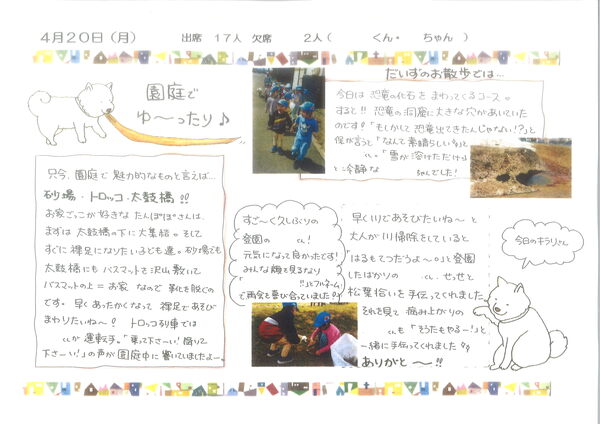 4月20日(月) 出席 17人 欠席 2人( くん・ ちゃん )
園庭で
ゆ〜ったり♪
只今、園庭で魅力的なものと言えば…
砂場・トロッコ・太鼓橋!!
お家ごっこが好きなたんぽぽさんは、
まずは太鼓橋の下に大集合。そして
すぐに裸足になりたい子ども達。砂場でも
太鼓橋にもバスマットを沢山敷いて
バスマットの上=お家なので靴を脱ぐの
です。早くあったかくなって裸足であそび
まわりたいね〜! トロッコ列車では
くんが運転手。「乗って下さーい!降りて
下さーい!」の声が園庭中に響いていましたよー。
だいずのお散歩では…
今日は恐竜の化石をまわってくるコース。
すると!!恐竜の洞窟に大きな穴があいていた
のです!「もしかして恐竜出てきたんじゃない!?」と
保が言うと「なんて素晴らしい。」と
くん。「雪が溶けただけ。」
と冷静な ちゃんでした!
すご〜く久しぶりの
登園の くん!
元気になって良かったです!
みんな顔を見るなり
「 !!」とフルネーム
で再会を喜び合っていました
早く川であそびたいね〜と
大人が川掃除をしていると
「はるもてつだうよ〜。」と登園
したばかりの くん。せっせと
松葉拾いを手伝ってくれました
それを見て病み上がりの
くんも「そうたもやる〜!」と
一緒に手伝ってくれました
ありがと〜〜!!
今日のキラリさん